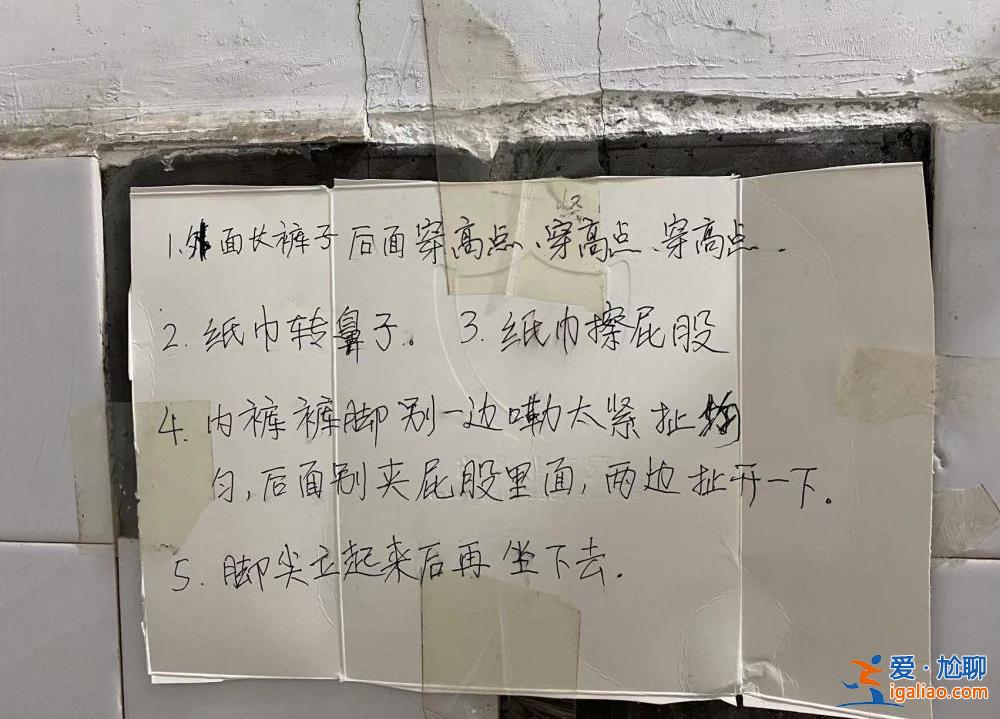 1.外面长裤子后面穿高点、穿高点、穿高点.
2.纸巾转鼻子。 3.纸巾擦屁股
4.内裤裤脚别一边嘞太紧扯均
匀,后面别夹屁股里面,两边扯开一下。
5.脚尖立起来后再坐下去.
爱·尬聊
igaliao.com